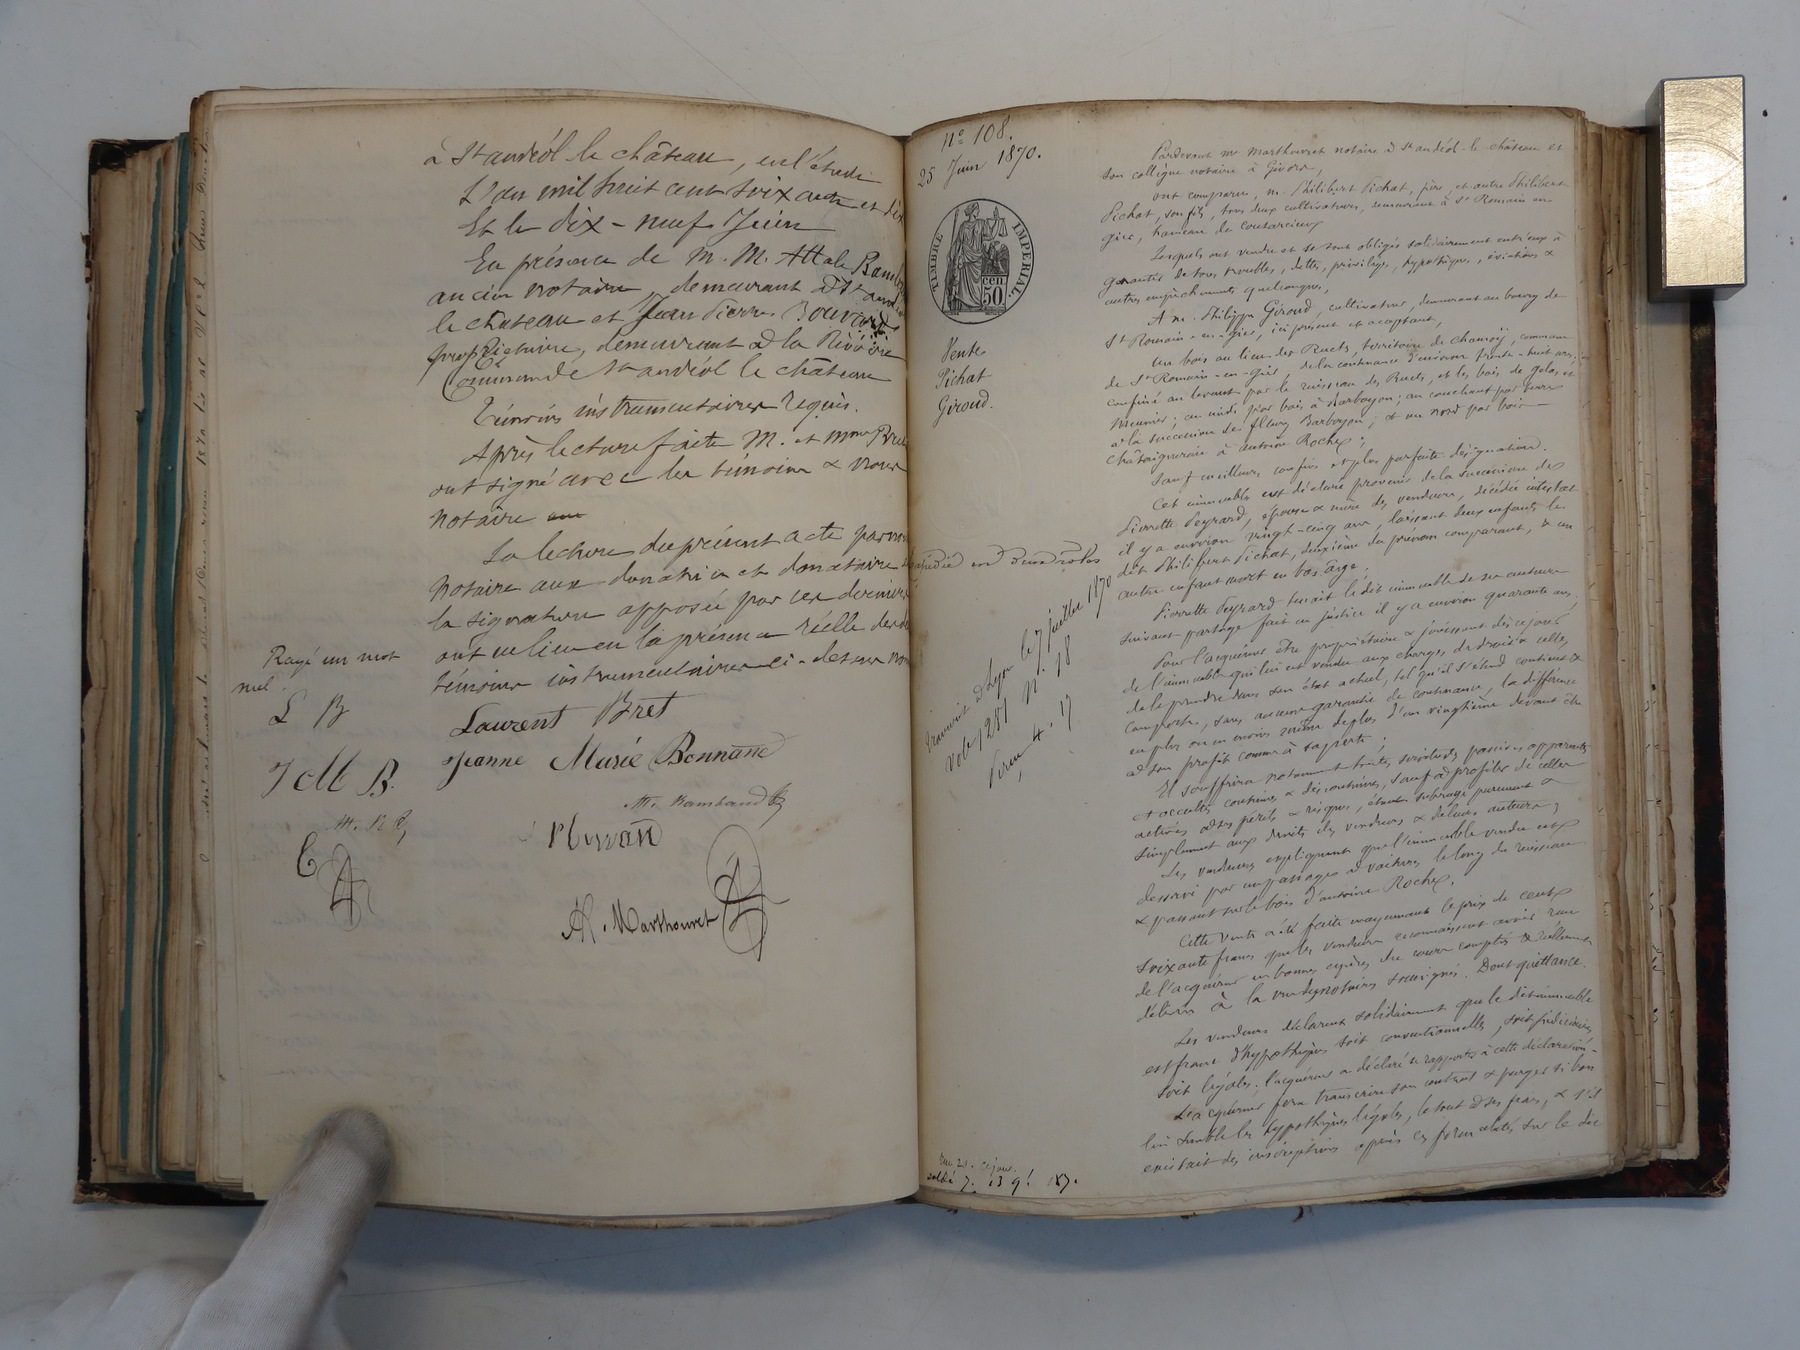 à St andéol le château, en l'étude
L'an mil huit cent soixante et dix
Et le dix-neuf Juin
En présence de M. M. Attale Rambaud
ancien notaire, demeurant à St andéol
le château et Jean Pierre Bouvard
propriétaire, demeurant à la Rivoire
Commune de St andéol le château
Témoins instrumentaires requis.
Après lecture faite M. et Mme Bret
ont signé avec les témoins & nous
notaire
La lecture du présent acte par nous
notaire aux donatrice et donataire &
la signature apposée par ces derniers
ont eu lieu en la présence réelle des
témoins instrumentaires ci-dessus nommés
Rayé un mot
nul.
L B
J M B.
Laurent Bret
Jeanne Marie Bonnand
At. Rambaud
At. R
A. Marthouret
N° 108.
25 Juin 1870.
TIMBRE IMPÉRIAL
50 cen
Vente
Pichat
Giroud.
expédié en deux rôles
Transcrit à Lyon le 7 juillet 1870
Vol. 1281 N° 18
Pardevant me Marthouret notaire à St andéol-le château et
son collègue notaire à Givors,
ont comparu, m. Philibert Pichat, père, et autre Philibert
Pichat, son fils, tous deux cultivateurs, demeurant à St Romain en
gier, hameau de
Lesquels ont vendu et se sont obligés solidairement entr'eux à
garantir de tous troubles, dettes, privilèges, hypothèques, évictions &
autres empêchements quelconques,
A m. Philippe Giroud, cultivateur, demeurant au bourg de
St Romain-en-gier, ici présent et acceptant,
Un bois au lieu des Ruets, territoire de commune
de St Romain-en-gier, de la contenance d'environ trente-huit ares,
confiné au levant par le ruisseau des Ruets, et les bois de et
au midi par bois à Barboyon; au couchant par terre
à la succession de fleury Barboyon; et au nord par bois
châtaigneraie à antoine Roche;
Sauf meilleurs confins et plus parfaite désignation.
Cet immeuble est déclaré provenir de la succession de
Pierrette Peyrard, épouse & mère des vendeurs, décédée intestat
il y a environ vingt-cinq ans, laissant deux enfants le
dit Philibert Pichat, deuxième du prénom comparant, & un
autre enfant mort en bas âge.
Pierrette Peyrard tenait le dit immeuble de ses auteurs
suivant partage fait en justice il y a environ quarante ans.
Pour l'acquéreur être propriétaire & jouissant dès ce jour
de l'immeuble qui lui est vendu aux charges de droit & celles
de le prendre dans son état actuel, tel qu'il s'étend contient &
comporte, sans aucune garantie de contenance, la différence
en plus ou en moins même de plus d'un vingtième devant être
à son profit comme à sa perte;
Il souffrira notamment toutes servitudes passives apparentes
et occultes continues & discontinues, sauf à profiter de celles
actives à ses périls & risques, étant subrogé purement &
simplement aux droits des vendeurs & de leurs auteurs;
Les vendeurs expliquent que l'immeuble vendu est
desservi par un passage à voitures le long du ruisseau
& passant sur le bois d'antoine Roche.
Cette vente a été faite moyennant le prix de cent
soixante francs que les vendeurs reconnaissent avoir reçu
de l'acquéreur en bonnes espèces du cours comptés & réellement
délivrés à la vue des notaires soussignés. Dont quittance.
Les vendeurs déclarent solidairement que le dit immeuble
est franc d'hypothèques soit conventionnelles, soit judiciaires,
soit légales. l'acquéreur a déclaré se rapporter à cette déclaration.
L'acquéreur fera transcrire son contrat & purger si bon
lui semble les hypothèques légales, le tout à ses frais, & s'il
existait des inscriptions après ces formalités, sur le dit